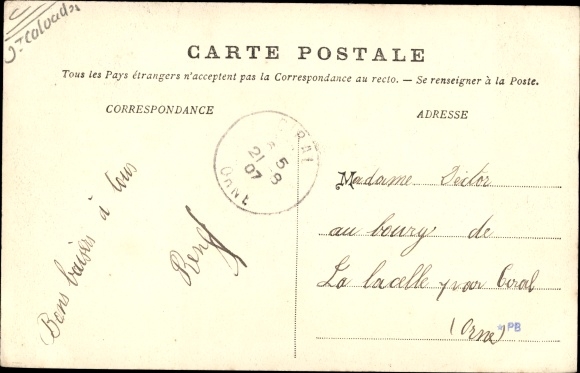 Calvados
CARTE POSTALE
Tous les Pays étrangers n'acceptent pas la Correspondance au recto. — Se renseigner à la Poste.
CORRESPONDANCE
ADRESSE
5
21 - 8
07
ORNE
Bons baisers à tous
René
Madame
au bourg de
La lacelle par Ciral
(Orne)
PB